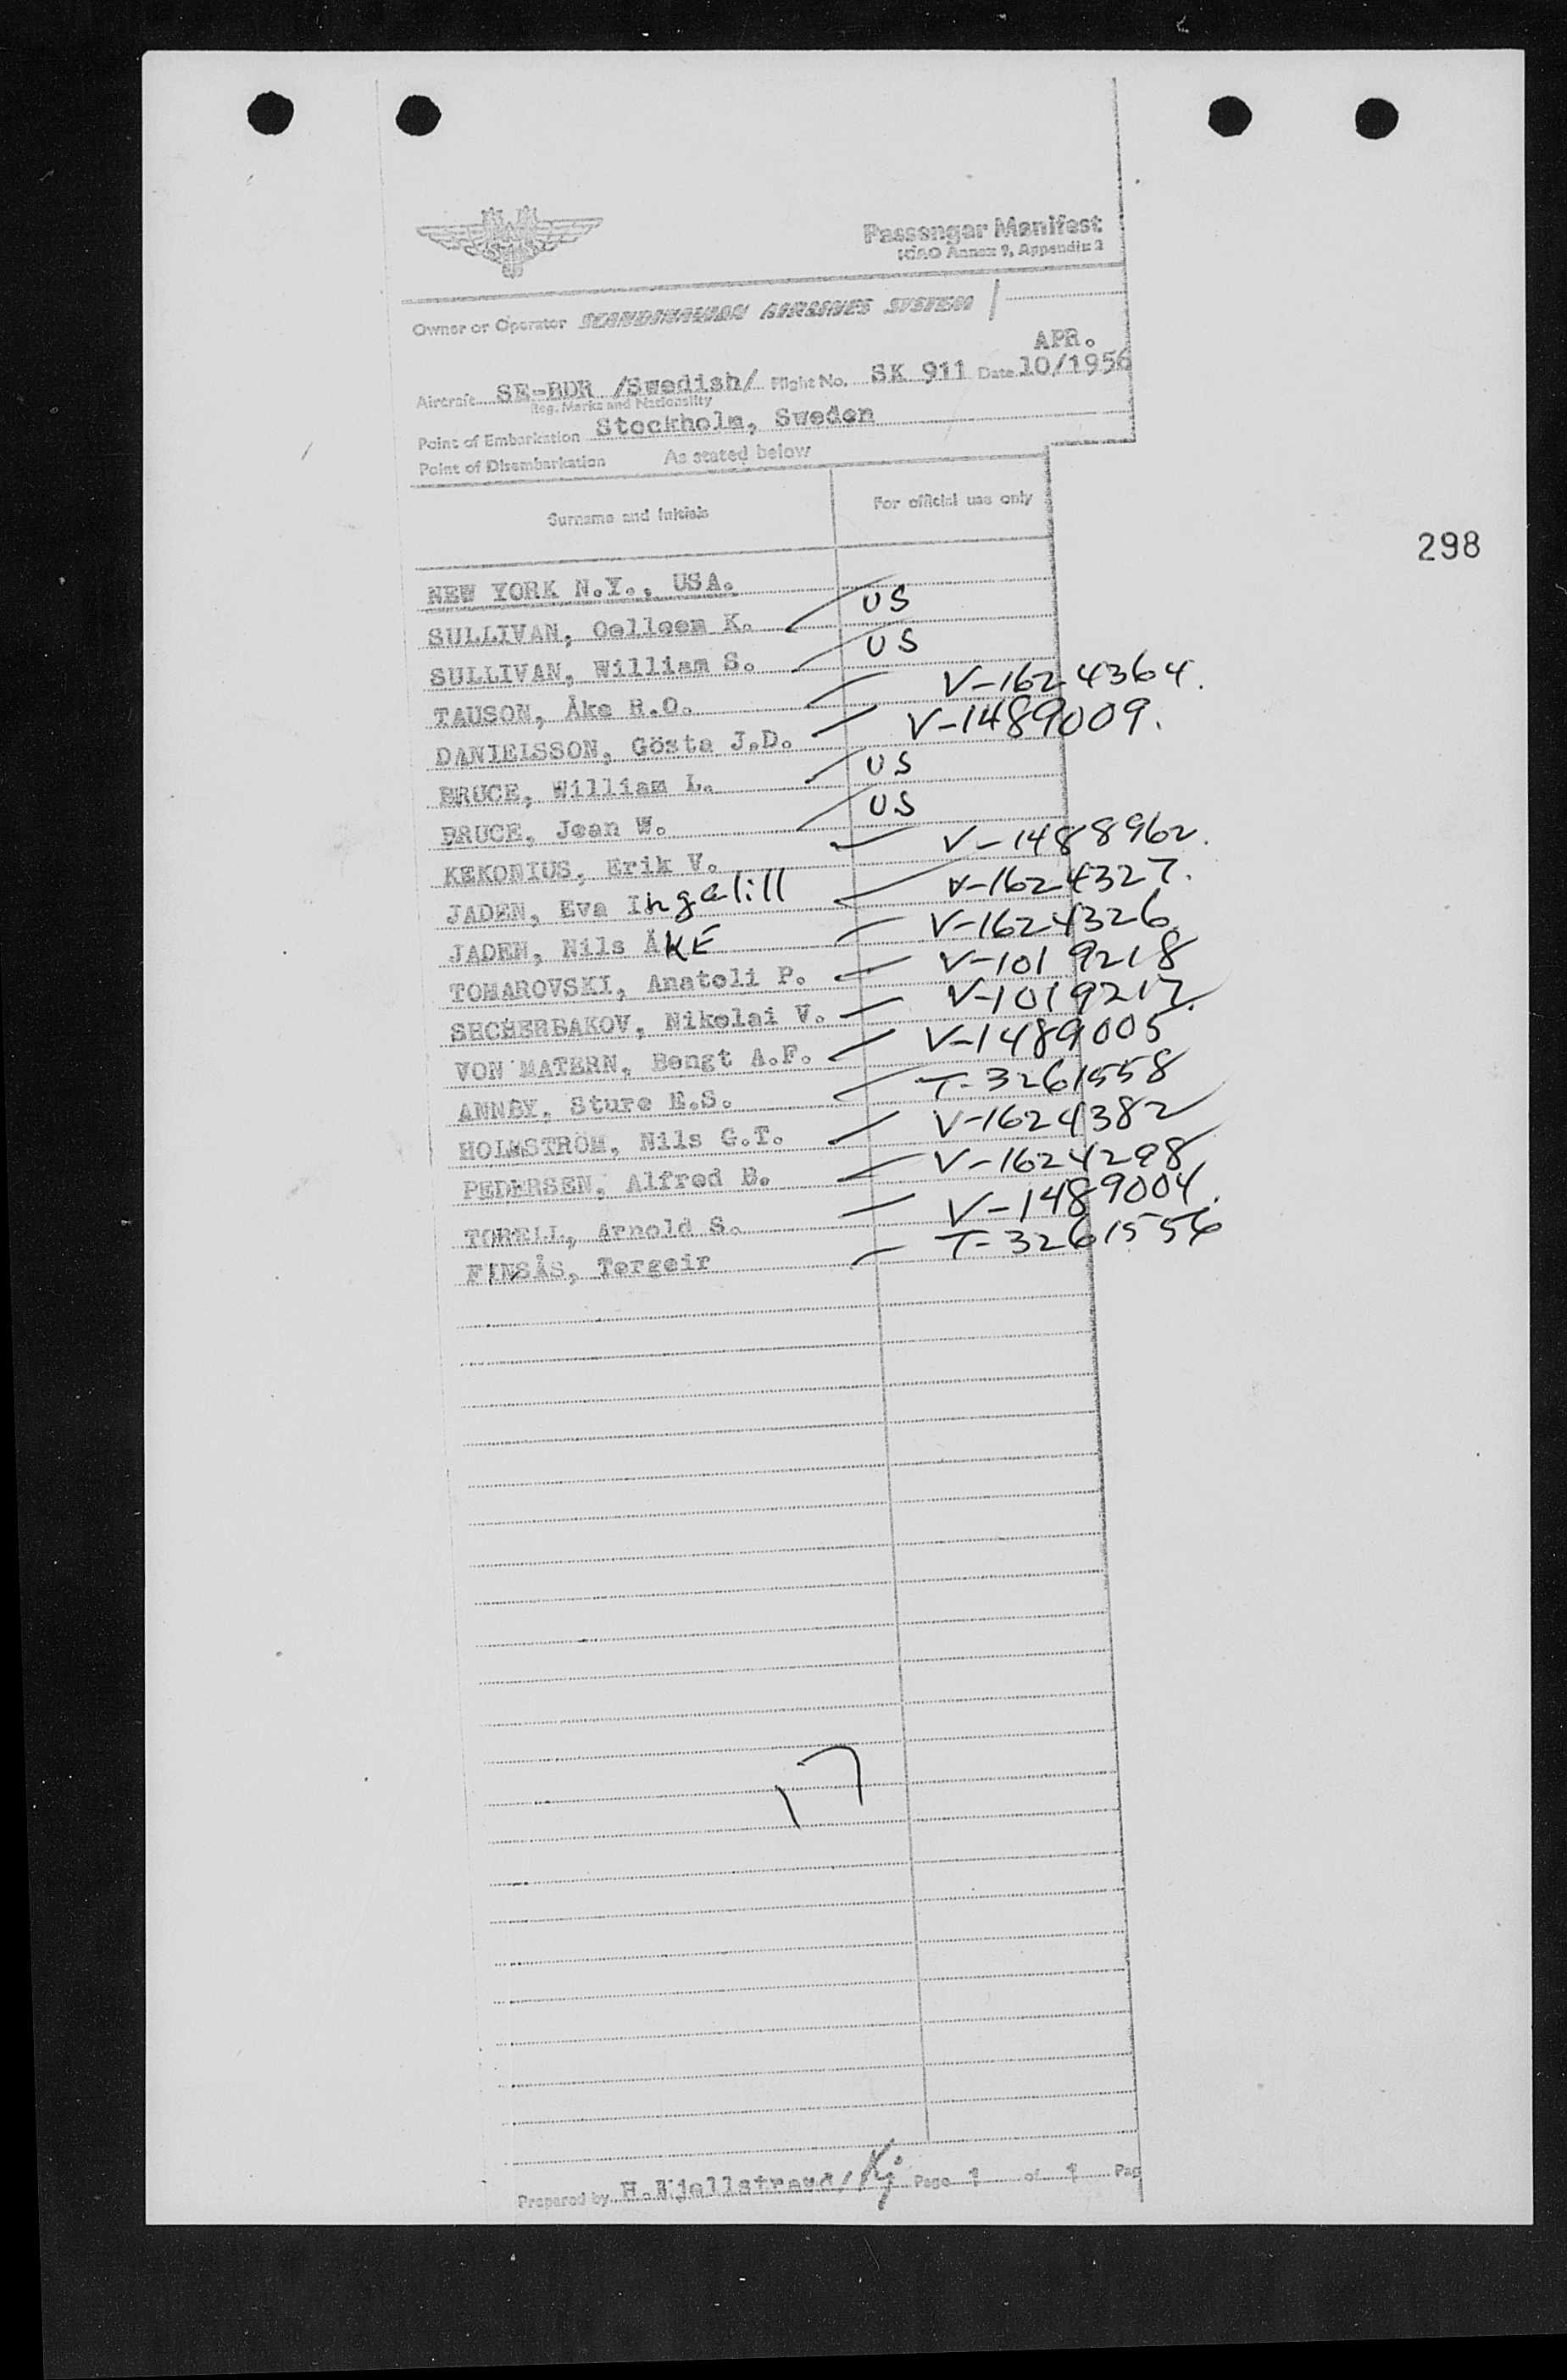 Passenger Manifest
ICAO Annex 9, Appendix 3
Owner or Operator SCANDINAVIAN AIRLINES SYSTEM
APR.
Aircraft SE-BDR /Swedish/ Flight No. SK 911 Date 10/1956
Reg. Marks and Nationality
Point of Embarkation Stockholm, Sweden
Point of Disembarkation As stated below
Surname and Initials For official use only
298
NEW YORK N.Y., USA.
SULLIVAN, Oelleem K. US
SULLIVAN, William S. US
TAUSON, Åke H.O. V-1624364.
DANIELSSON, Gösta J.D. V-1489009.
BRUCE, William L. US
BRUCE, Jean W. US
KEKONIUS, Erik V. V-1488962.
JADEN, Eva Ingalill V-1624327.
JADEN, Nils ÅKE V-1624326
TOMAROVSKI, Anatoli P. V-1019218
SHCHERBAKOV, Nikolai V. V-1019217.
VON MATERN, Bengt A.F. V-1489005
ANNBY, Sture E.S. T-3261558
HOLMSTRÖM, Nils G.T. V-1624382
PEDERSEN, Alfred B. V-1624298
TORELL, Arnold S. V-1489004.
FINSÅS, Torgeir T-3261556
17
Prepared by H.Kjellstrand/Kj Page 1 of 1 Pag